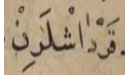 قَرْدَاشْلَرِنْ